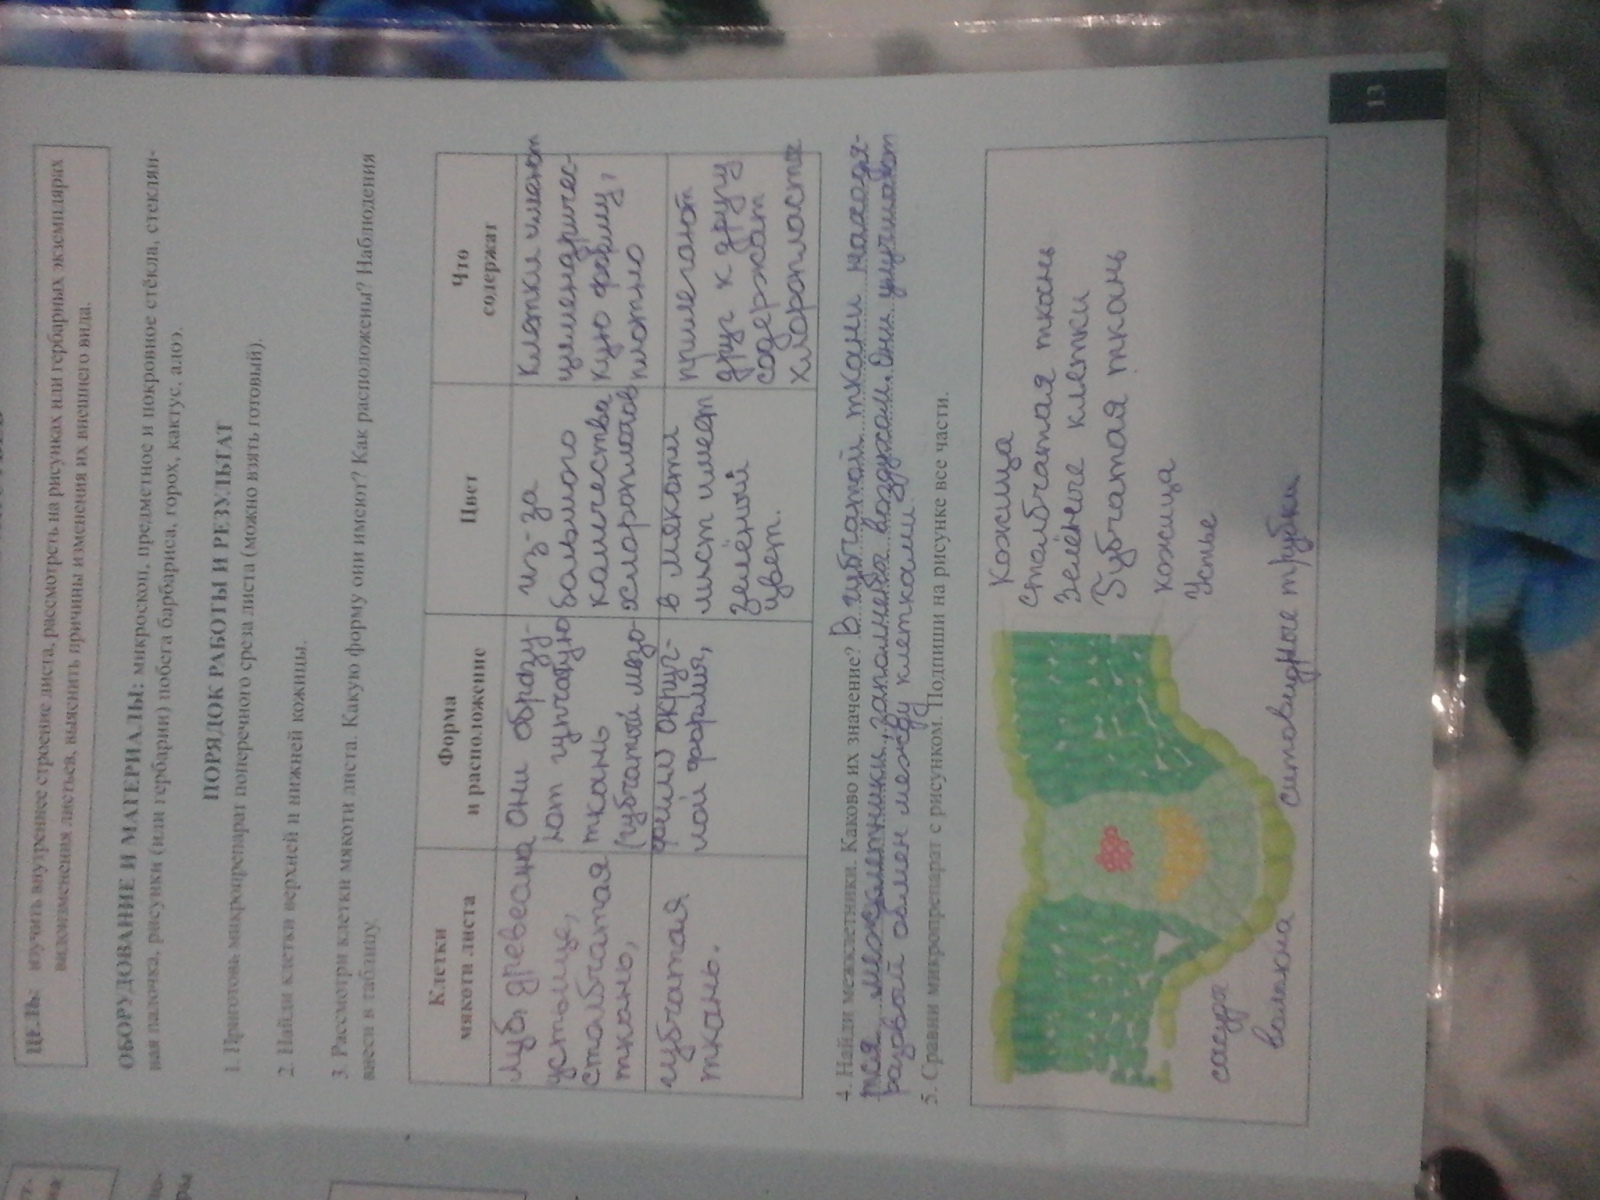 ЦЕЛЬ: изучить внутреннее строение листа, рассмотреть на рисунках или гербарных экземплярах
видоизменения листьев, выяснить причины изменения их внешнего вида.
ОБОРУДОВАНИЕ И МАТЕРИАЛЫ: микроскоп, предметное и покровное стёкла, стеклян-
ная палочка, рисунки (или гербарии) побега барбариса, горох, кактус, алоэ.
ПОРЯДОК РАБОТЫ И РЕЗУЛЬТАТ
1. Приготовь микропрепарат поперечного среза листа (можно взять готовый).
2. Найди клетки верхней и нижней кожицы.
3. Рассмотри клетки мякоти листа. Какую форму они имеют? Как расположены? Наблюдения
внеси в таблицу.
Клетки
мякоти листа
Форма
и расположение
Цвет
Что
содержат
луб, древесина
устьице,
столбчатая
ткань,
они образу-
ют губчатую
ткань
(губчатый мезо-
из-за
большого
количества
хлоропластов
клетки имеют
цилиндричес-
кую форму,
плотно
губчатая
ткань.
фили округ-
лой форма,
в мякоти
лист имеет
зелёный
цвет.
прилегают
друг к другу
содержат
хлоропласты
4. Найди межклетники. Каково их значение? В губчатой ткани находят-
тся межклетники, заполнена воздухом. Они улучшают
газовой обмен между клетками.
5. Сравни микропрепарат с рисунком. Подпиши на рисунке все части.
Кожица
столбчатая ткань
Зелёные клетки
Губчатая ткань
кожица
Устье
сосуд
волокна
ситовидные трубки
13